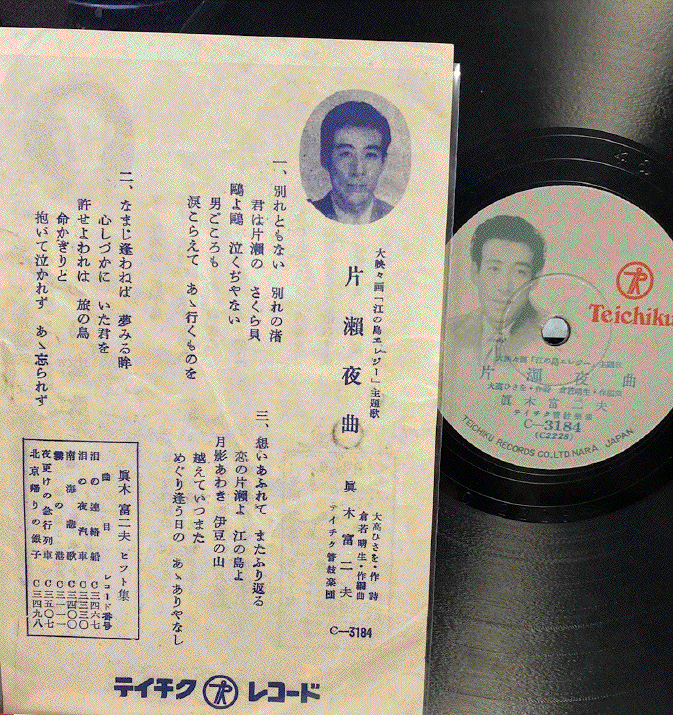 大映々画「江の島エレジー」主題歌
片瀬夜曲
大高ひさを・作詩
倉若晴生・作編曲
眞木富二夫
テイチク管絃楽団
C—3184
一、別れともない 別れの渚
君は片瀬の さくら貝
鴎よ鴎 泣くぢやない
男ごころも
涙こらえて あゝ行くものを
二、なまじ逢わねば 夢みる眸
心しづかに いた君を
許せよわれは 旅の鳥
命かぎりと
抱いて泣かれず あゝ忘られず
三、想いあふれて またふり返る
恋の片瀬よ 江の島よ
月影あわき 伊豆の山
越えていつまた
めぐり逢う日の あゝありやなし
眞木富二夫 ヒット集
曲目 レコード番号
泪の連絡船 C三四六七
泪の夜汽車 C三三三〇
南海悲歌 C三四〇〇
の港 C三一一一
夜更けの急行列車 C三五〇七
北京帰りの銀子 C三四九八
テイチク レコード
Teichiku
大映々画「江の島エレジー」主題歌
片瀬夜曲
大高ひさを・作詩 倉若晴生・作編曲
眞木富二夫
テイチク管絃楽団
C—3184
(C2228)
TEICHIKU RECORDS CO.,LTD. NARA JAPAN